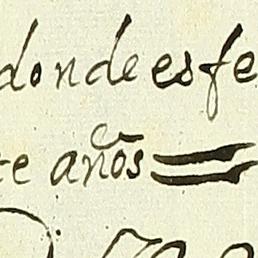 donde es fe
te años =